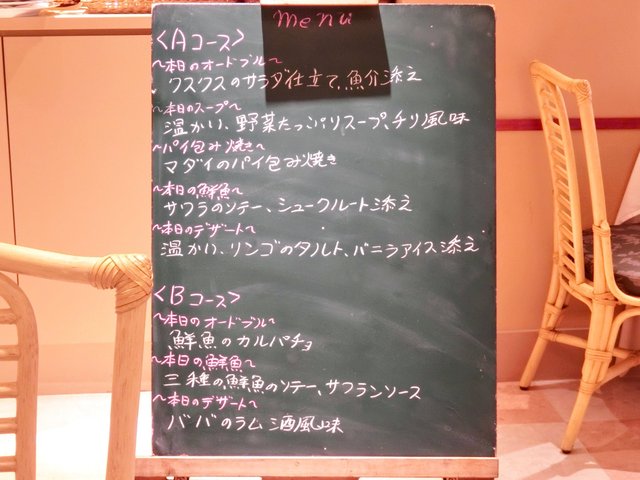 menu
<Aコース>
~本日のオードブル~
クスクスのサラダ仕立て、魚介添え
~本日のスープ~
温かい、野菜たっぷりスープ、チリ風味
~パイ包み焼き~
マダイのパイ包み焼き
~本日の鮮魚~
サワラのソテー、シュークルート添え
~本日のデザート~
温かい、リンゴのタルト、バニラアイス添え
<Bコース>
~本日のオードブル~
鮮魚のカルパチョ
~本日の鮮魚~
三種の鮮魚のソテー、サフランソース
~本日のデザート~
ババのラム酒風味